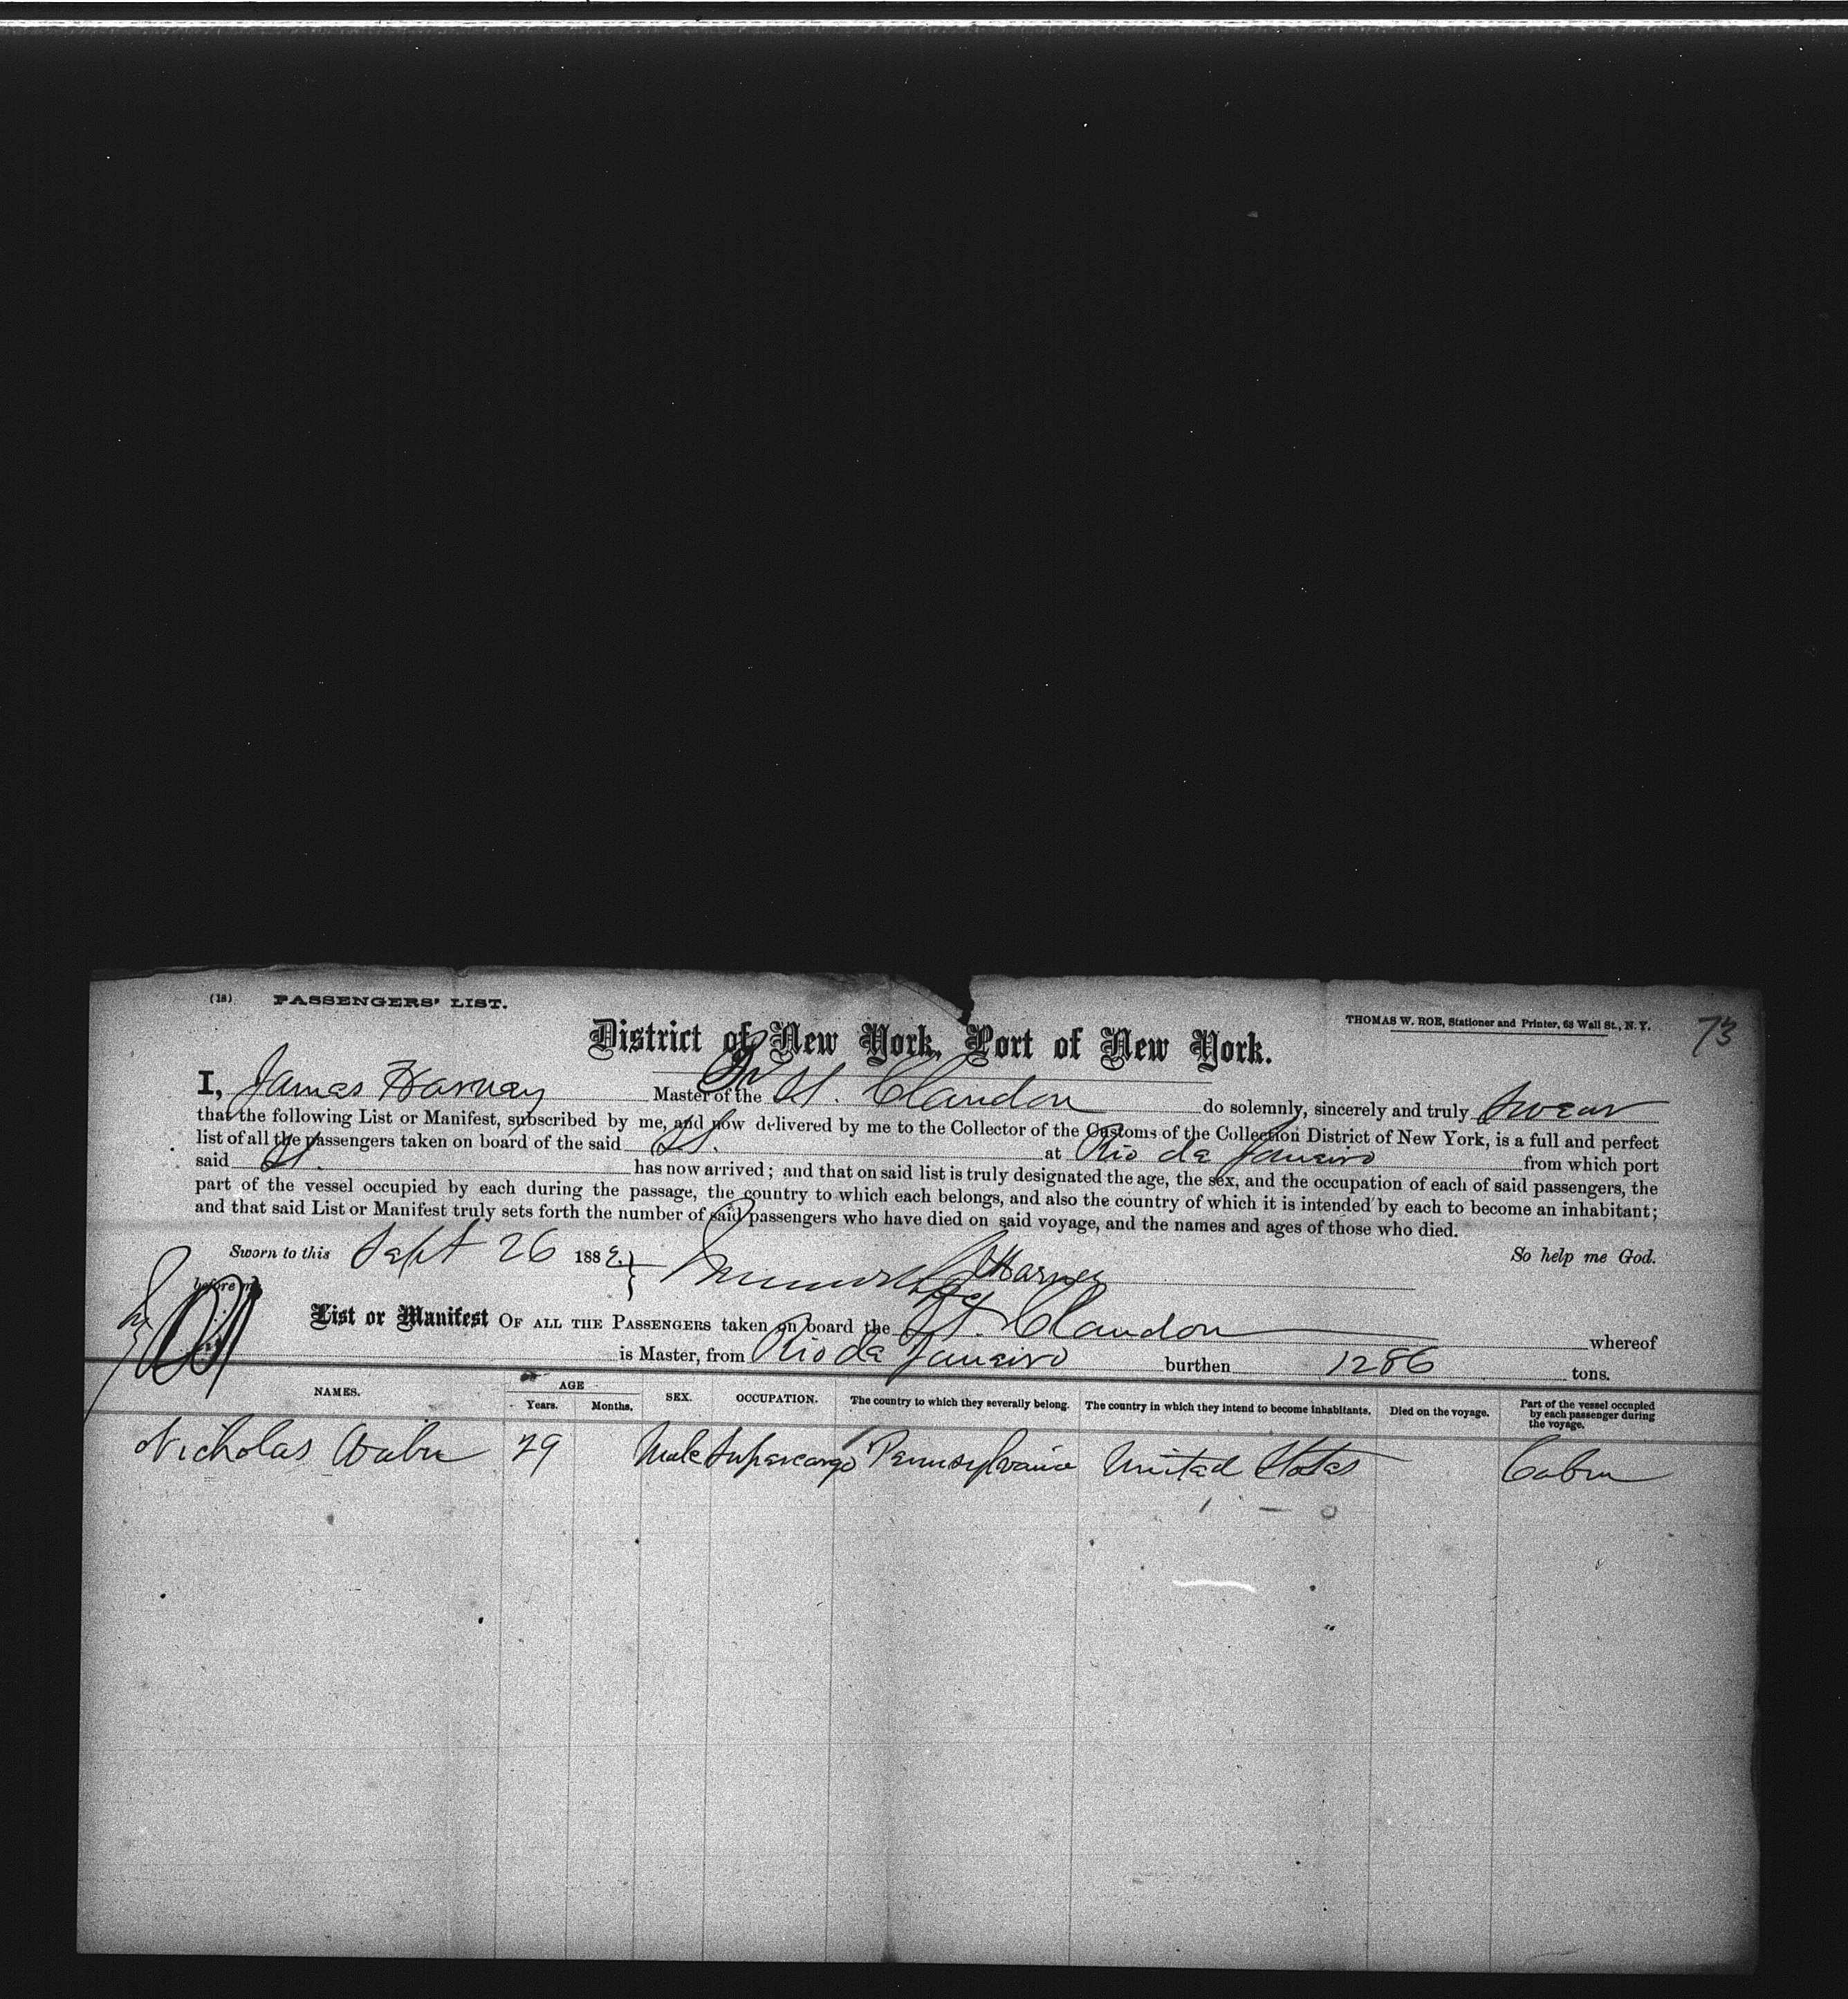 (18) PASSENGERS' LIST.
THOMAS W. ROE, Stationer and Printer, 63 Wall St., N. Y. 73
District of New York, Port of New York.
I, James Harney Master of the Br St. Clandon do solemnly, sincerely and truly Swear
that the following List or Manifest, subscribed by me, and now delivered by me to the Collector of the Customs of the Collection District of New York, is a full and perfect
list of all the passengers taken on board of the said St. at Rio de Janeiro from which port
said St. has now arrived; and that on said list is truly designated the age, the sex, and the occupation of each of said passengers, the
part of the vessel occupied by each during the passage, the country to which each belongs, and also the country of which it is intended by each to become an inhabitant;
and that said List or Manifest truly sets forth the number of said passengers who have died on said voyage, and the names and ages of those who died.
Sworn to this Sept 26 188 So help me God.
before me J Harney
List or Manifest OF ALL THE PASSENGERS taken on board the St. Clandon whereof
is Master, from Rio da Janeiro burthen 1286 tons.
NAMES. AGE Years. Months. SEX. OCCUPATION. The country to which they severally belong. The country in which they intend to become inhabitants. Died on the voyage. Part of the vessel occupied by each passenger during the voyage.
Nicholas 29 Male Supercargo Pennsylvania United States Cabin